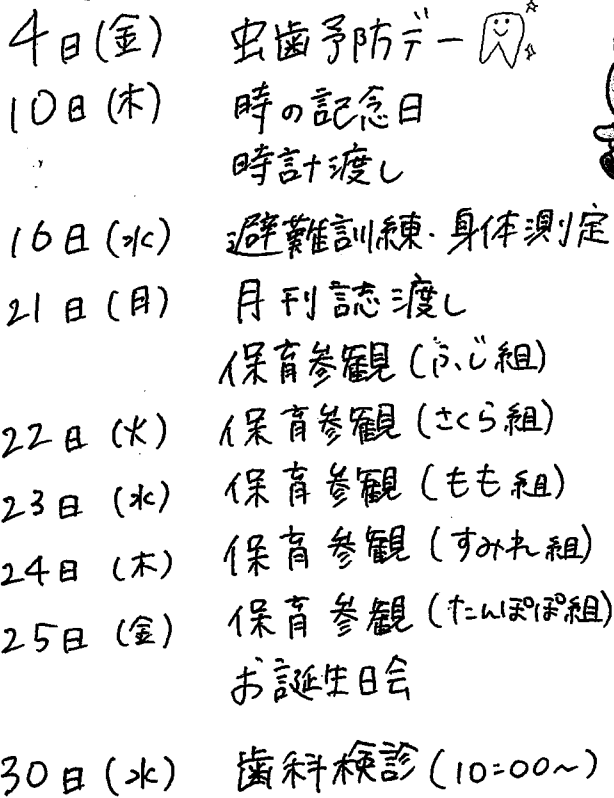 4日(金) 虫歯予防デー
10日(木) 時の記念日
時計渡し
16日(水) 避難訓練・身体測定
21日(月) 月刊誌渡し
保育参観(ふじ組)
22日(火) 保育参観(さくら組)
23日(水) 保育参観(もも組)
24日(木) 保育参観(すみれ組)
25日(金) 保育参観(たんぽぽ組)
お誕生日会
30日(水) 歯科検診(10:00〜)